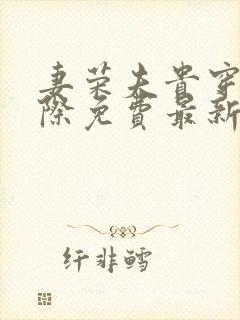 妻荣夫贵穿
际免费最新
纤非鳕